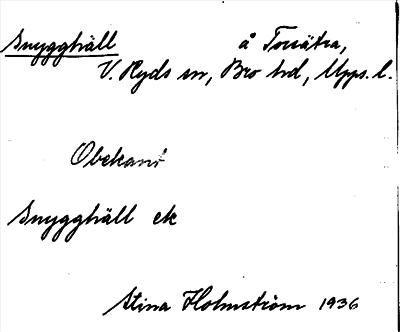 Snygghäll å Torsätra,
V. Ryds sn, Bro hd, Upps. l.
Obekant
Snygghäll ek
Stina Holmström 1936